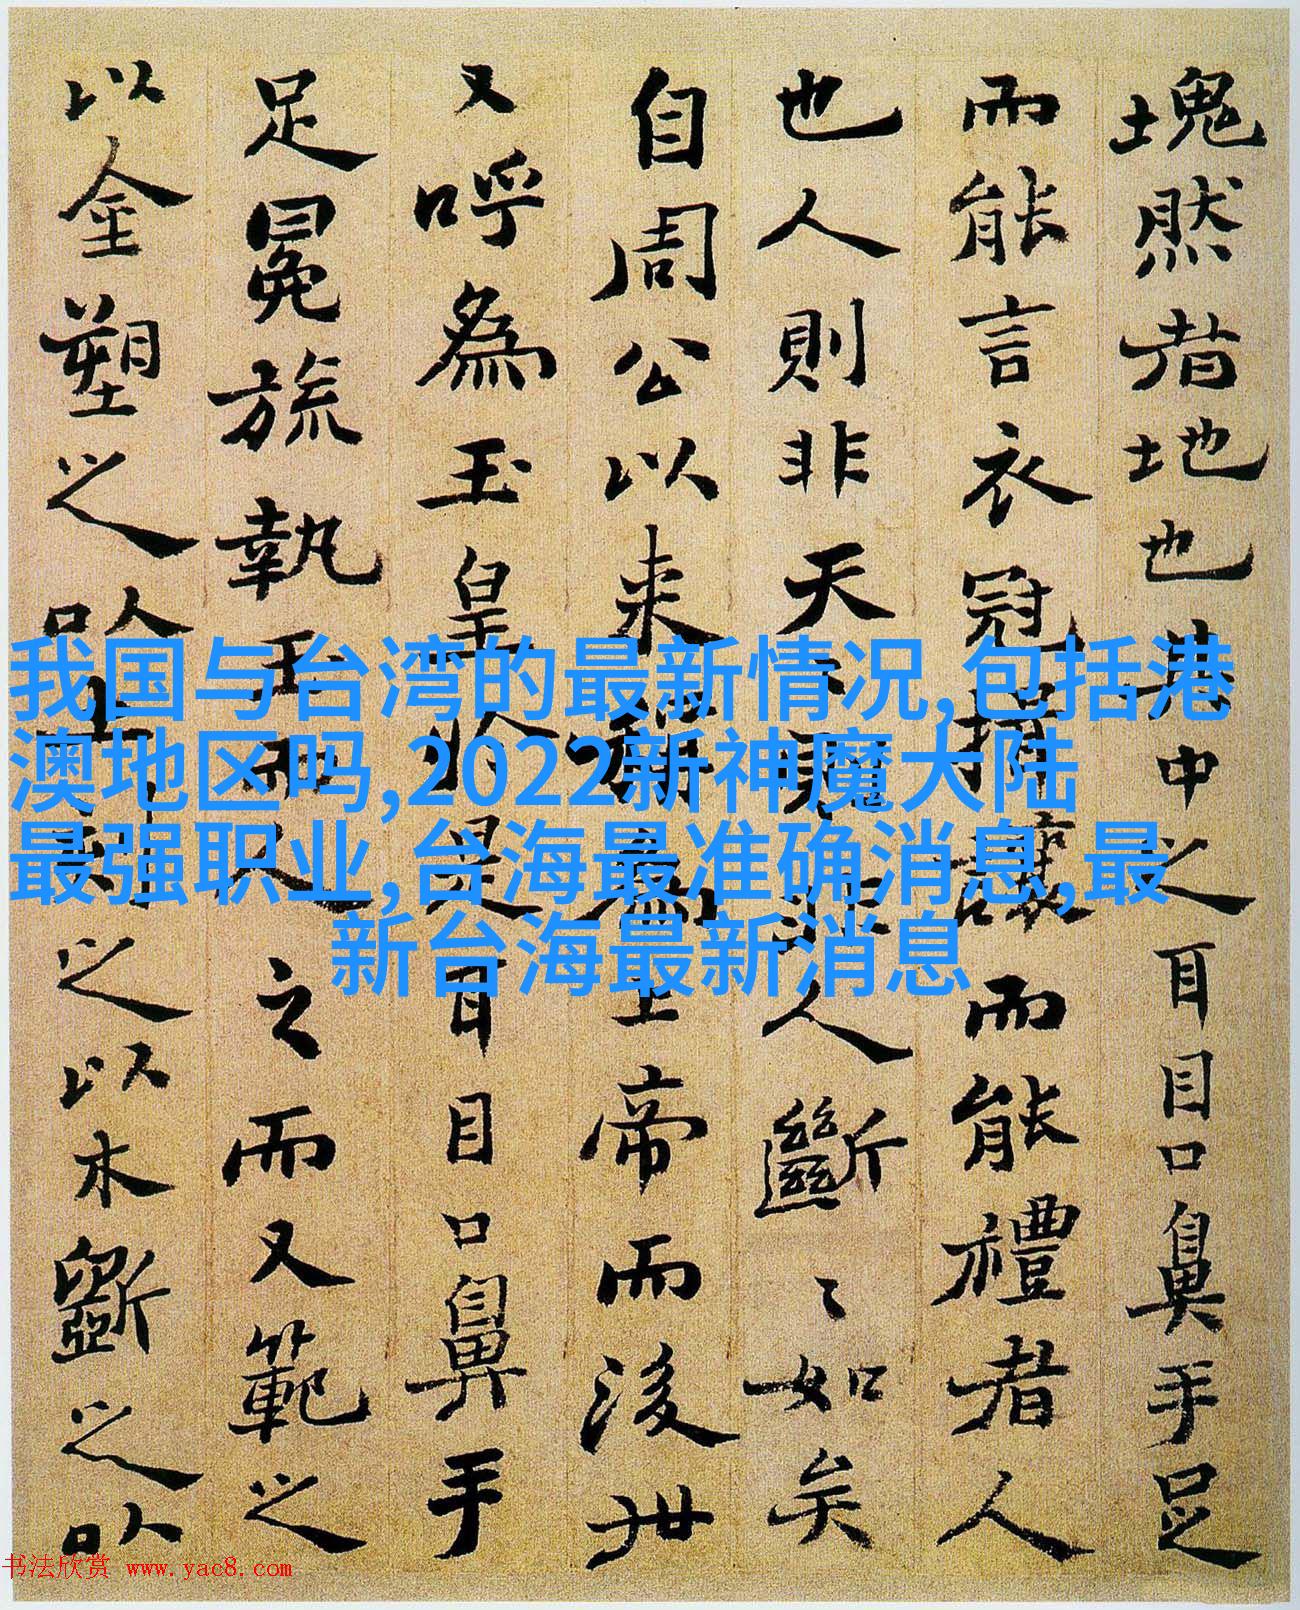 塊然者地也其中之耳目口鼻手足
而能言衣冠揖讓而能禮者人
也人則非天天非人斷〻如矣
自周公以来稱為上帝而後世
又呼為玉皇於是耳目口鼻手
足冕旒執玉而人之而又範之
以金塑之以土刻之以木斲之以
我国与台湾的最新情况,包括港
澳地区吗,2022新神魔大陆
最强职业,台海最准确消息,最
新台海最新消息
书法欣赏 www.yac8.com